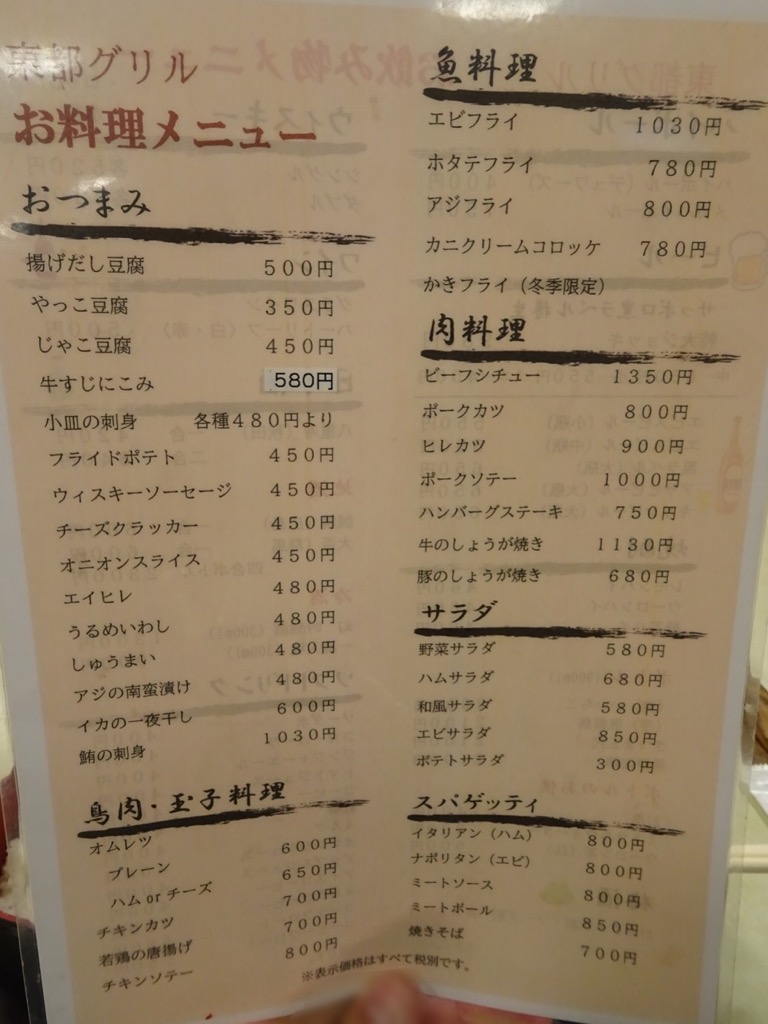 東都グリル
お料理メニュー
おつまみ
揚げだし豆腐 500円
やっこ豆腐 350円
じゃこ豆腐 450円
牛すじにこみ 580円
小皿の刺身 各種480円より
フライドポテト 450円
ウィスキーソーセージ 450円
チーズクラッカー 450円
オニオンスライス 450円
エイヒレ 480円
うるめいわし 480円
しゅうまい 480円
アジの南蛮漬け 480円
イカの一夜干し 600円
鮪の刺身 1030円
鳥肉・玉子料理
オムレツ
プレーン 600円
ハム or チーズ 650円
チキンカツ 700円
若鶏の唐揚げ 700円
チキンソテー 800円
魚料理
エビフライ 1030円
ホタテフライ 780円
アジフライ 800円
カニクリームコロッケ 780円
かきフライ（冬季限定）
肉料理
ビーフシチュー 1350円
ポークカツ 800円
ヒレカツ 900円
ポークソテー 1000円
ハンバーグステーキ 750円
牛のしょうが焼き 1130円
豚のしょうが焼き 680円
サラダ
野菜サラダ 580円
ハムサラダ 680円
和風サラダ 580円
エビサラダ 850円
ポテトサラダ 300円
スパゲッティ
イタリアン（ハム） 800円
ナポリタン（エビ） 800円
ミートソース 800円
ミートボール 850円
焼きそば 700円
※表示価格はすべて税別です。